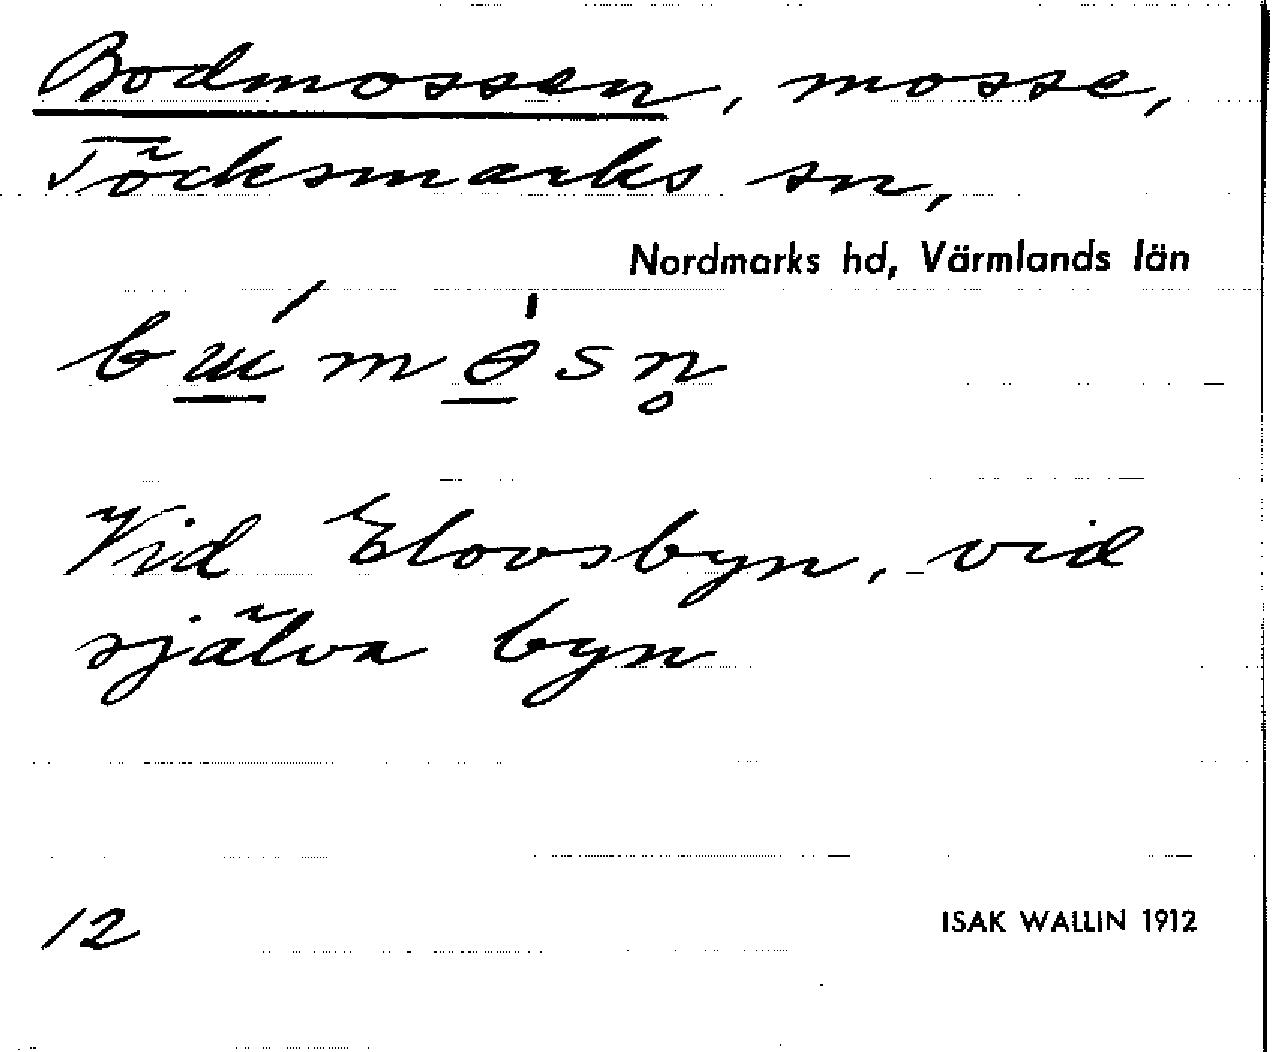 Bodmossen, mosse,
Töcksmarks sn,
Nordmarks hd, Värmlands län
Vid Elovsbyn, vid
själva byn
12
ISAK WALLIN 1912